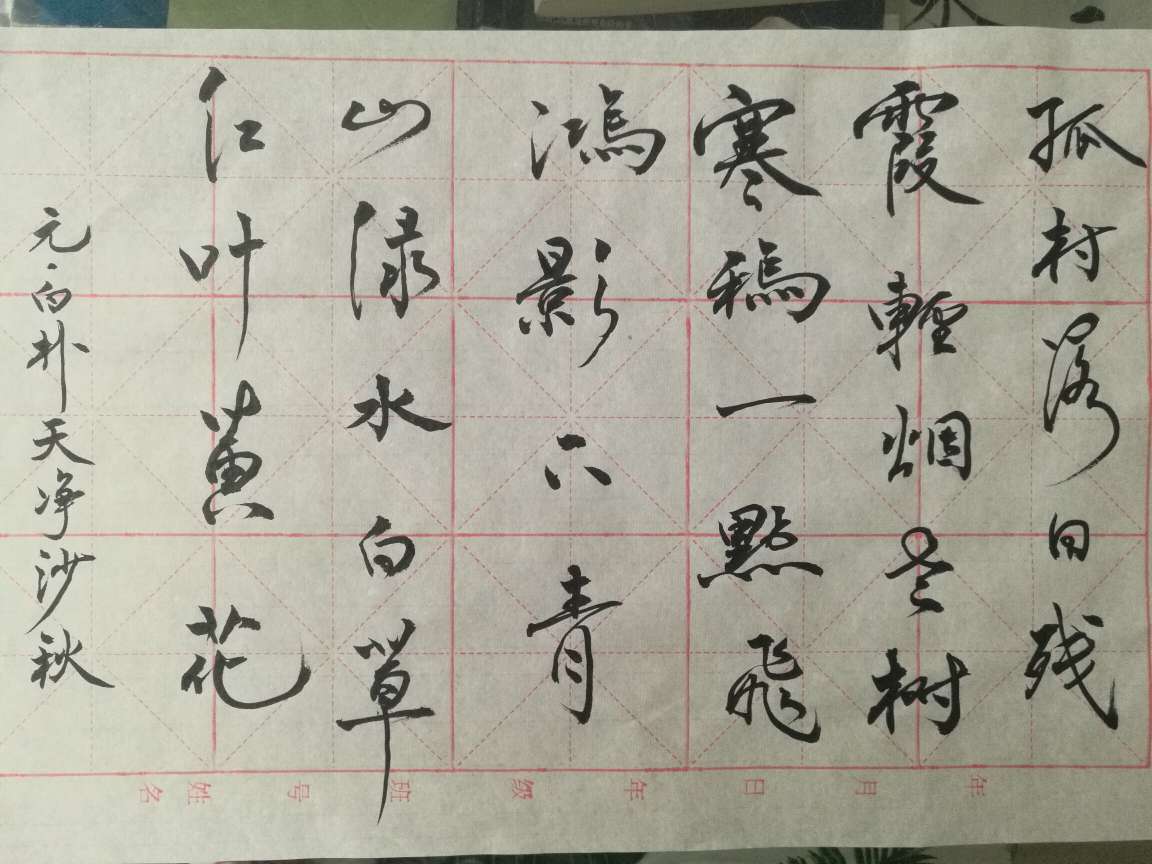 孤村落日残
霞轻烟老树
寒鸦一點飛
鴻影下青
山绿水白草
红叶黄花
元·白朴天净沙秋
年 月 日 年 级 班 号 姓 名